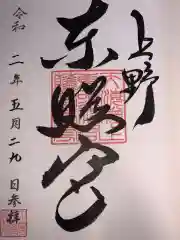 上野
東照宮
令和二年五月二九日参拝